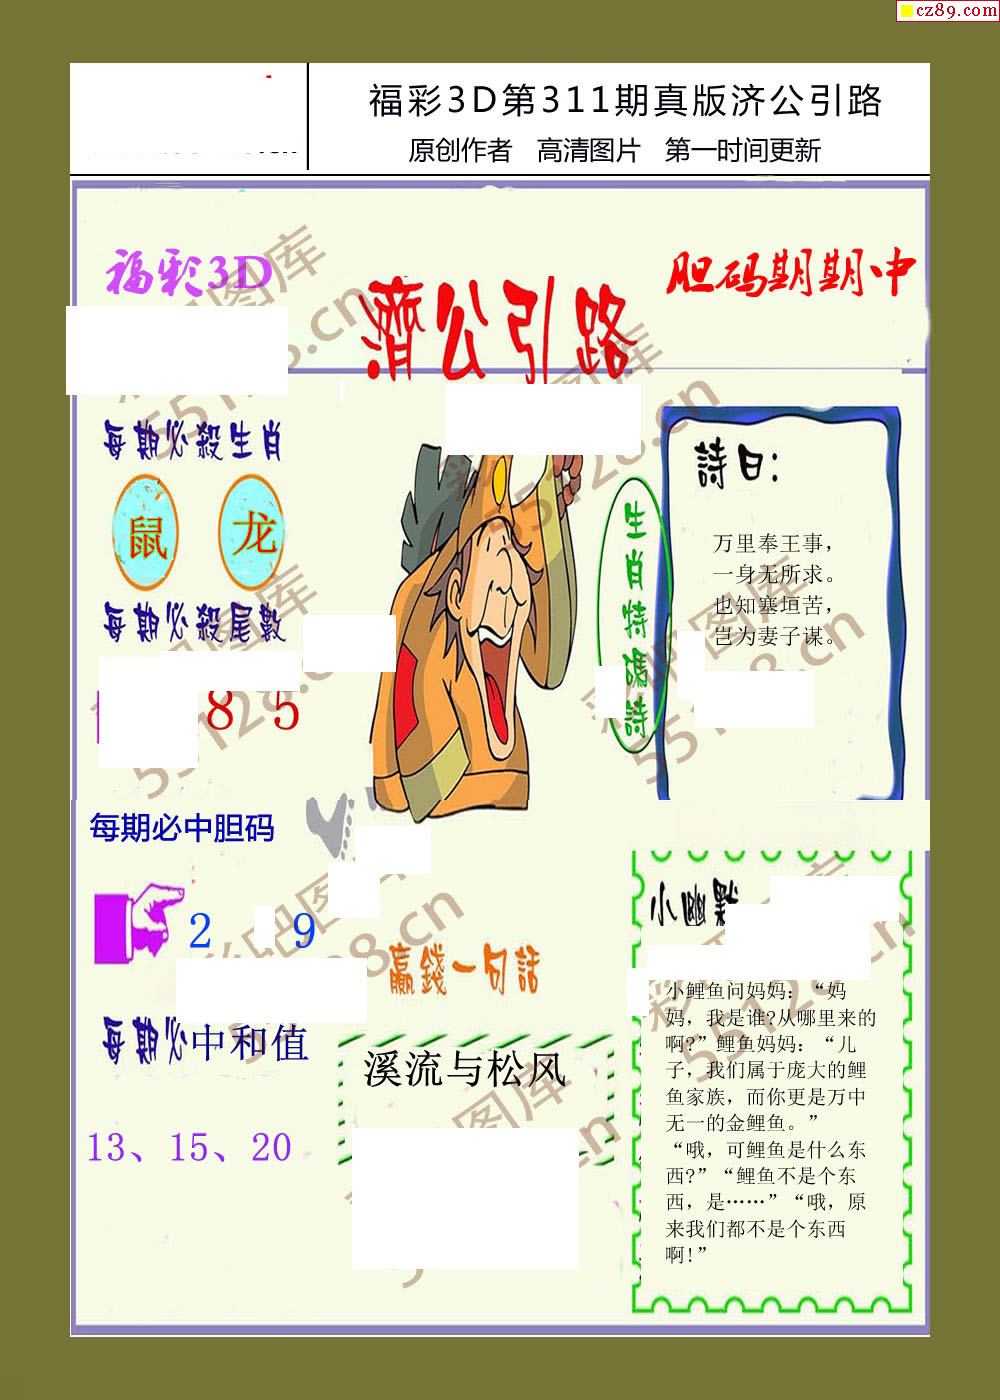 cz89.com
福彩3D第311期真版济公引路
原创作者 高清图片 第一时间更新
福彩3D
濟公引路
胆码期期中
每期必殺生肖
鼠 龙
每期必殺尾數
8 5
每期必中胆码
2 9
每期必中和值
13、15、20
生肖特碼詩
詩曰:
万里奉王事，
一身无所求。
也知塞垣苦，
岂为妻子谋。
贏錢一句話
溪流与松风
小幽默
小鲤鱼问妈妈：“妈
妈，我是谁?从哪里来的
啊?”鲤鱼妈妈：“儿
子，我们属于庞大的鲤
鱼家族，而你更是万中
无一的金鲤鱼。”
“哦，可鲤鱼是什么东
西?”“鲤鱼不是个东
西，是……”“哦，原
来我们都不是个东西
啊!”
彩吧图库
55128.cn